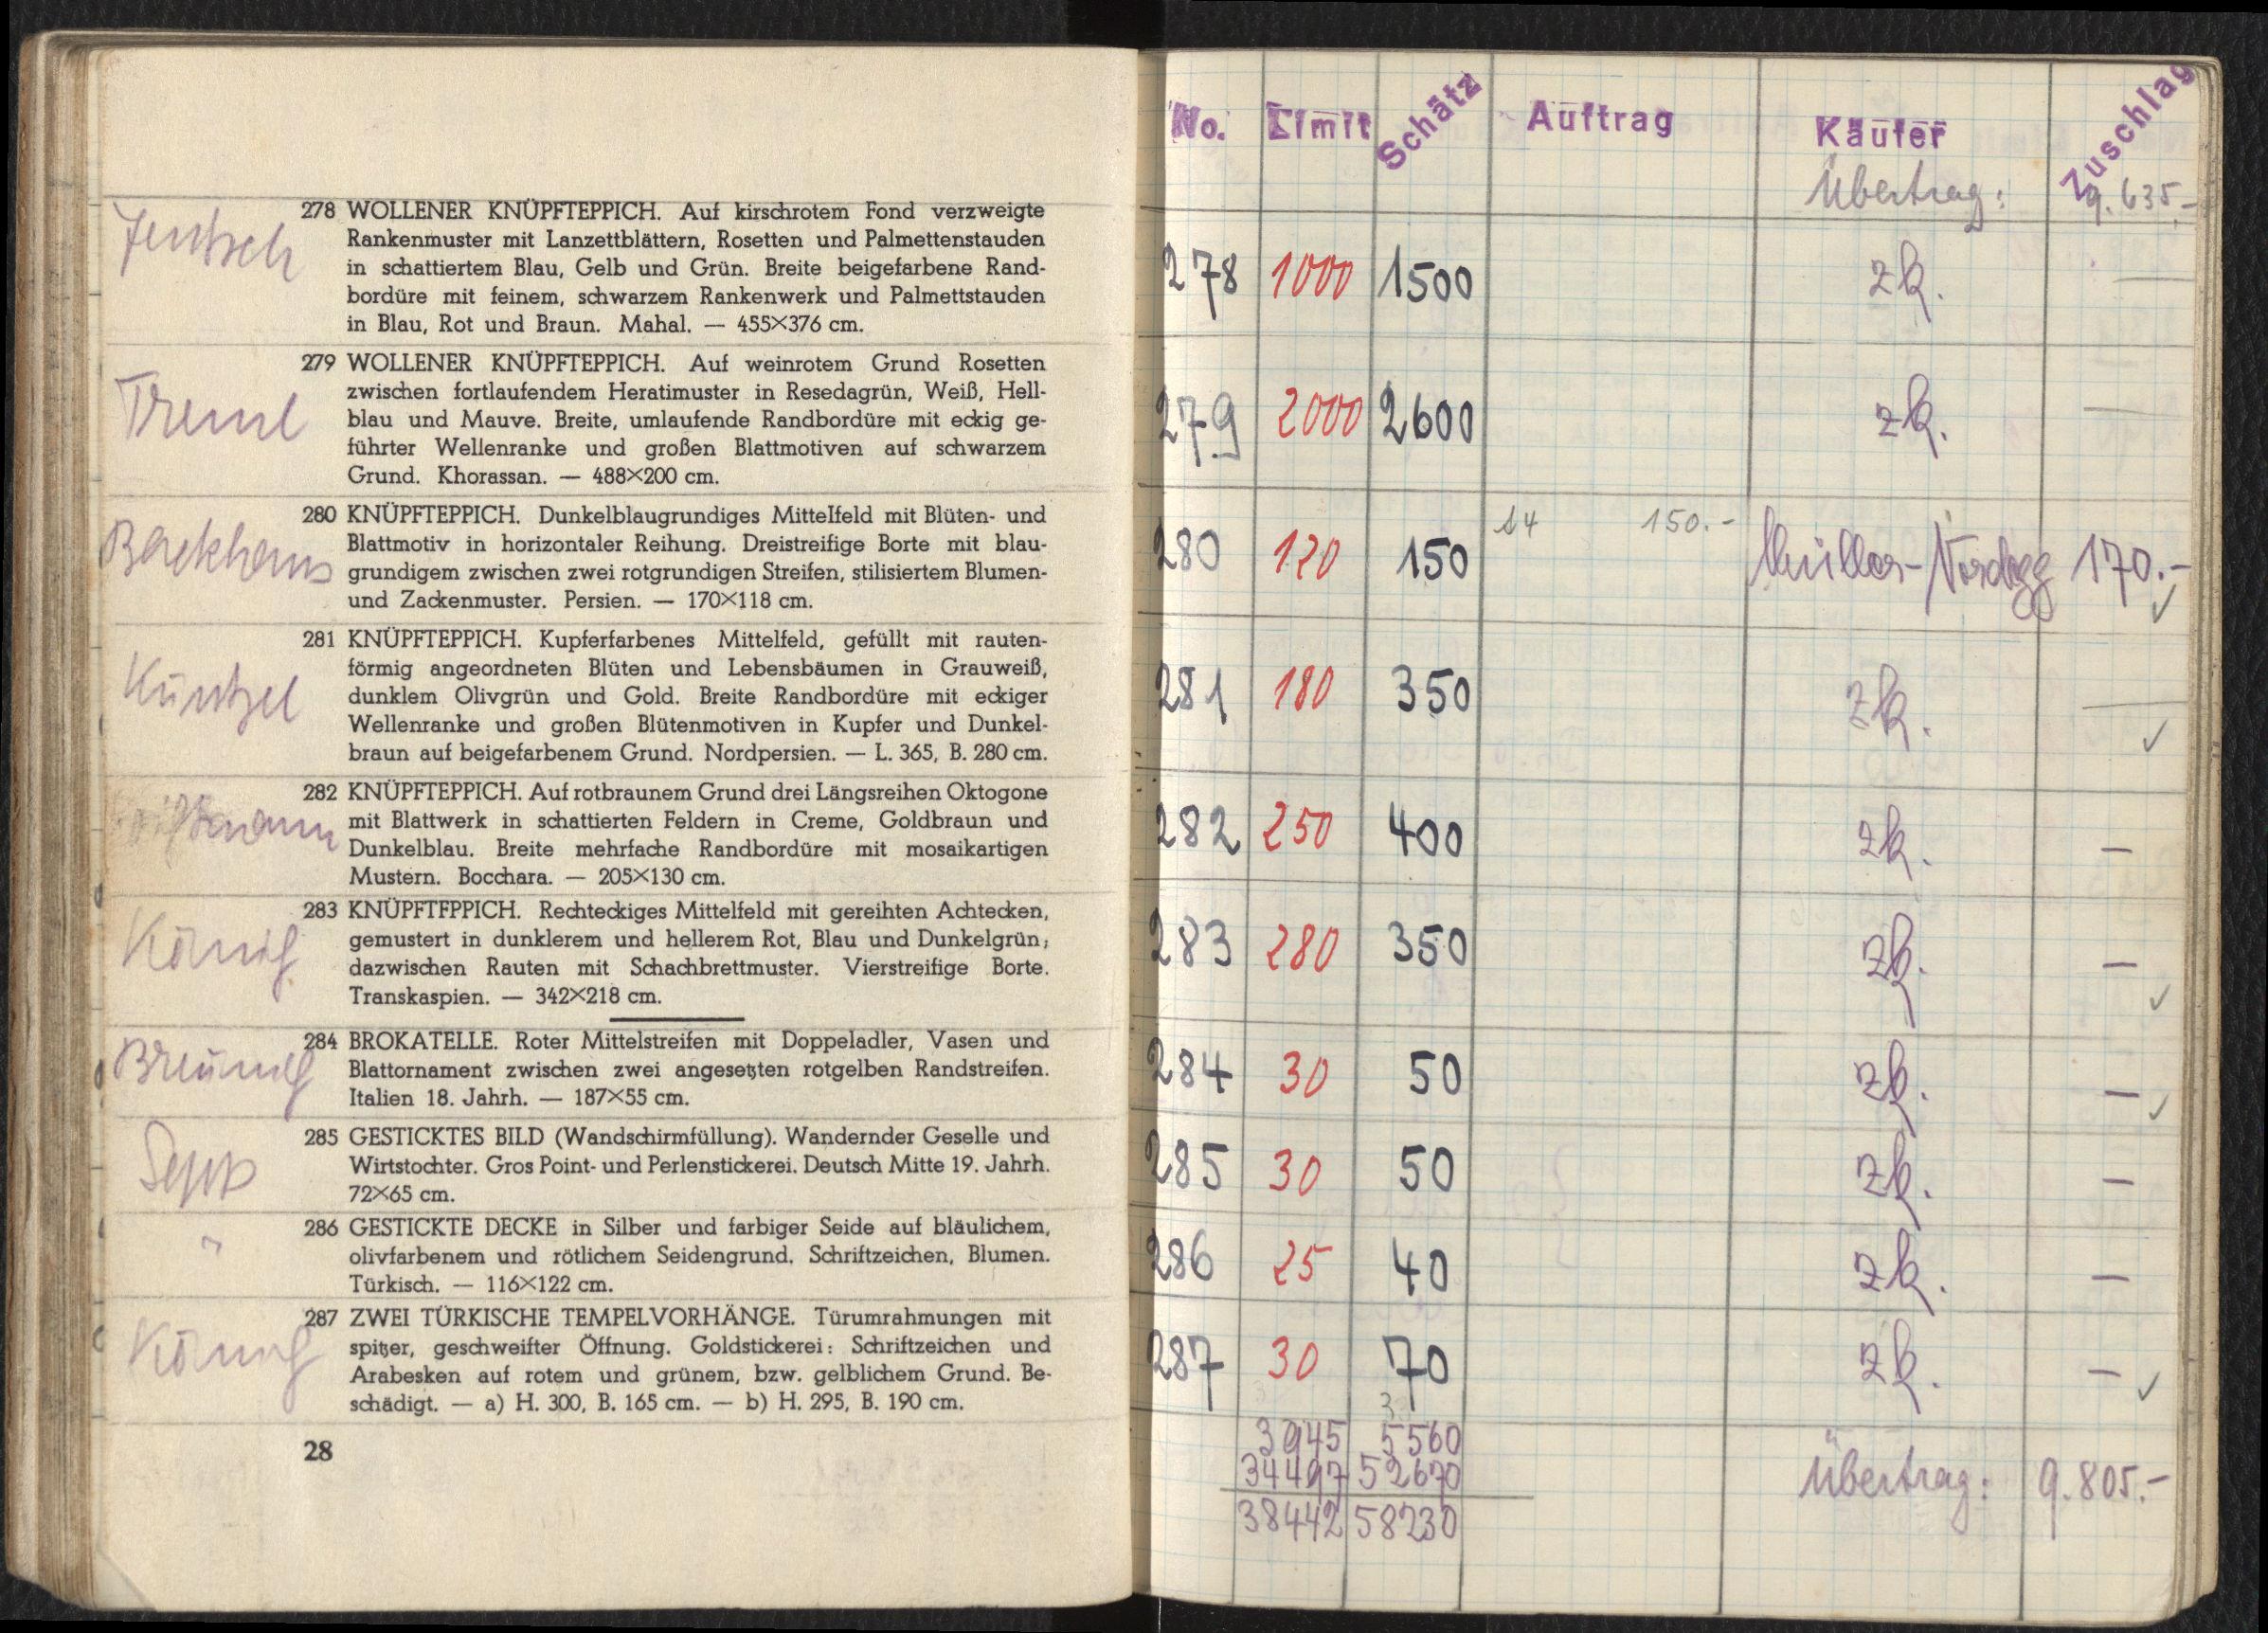 Jentsch
278 WOLLENER KNÜPFTEPPICH. Auf kirschrotem Fond verzweigte
Rankenmuster mit Lanzettblättern, Rosetten und Palmettenstauden
in schattiertem Blau, Gelb und Grün. Breite beigefarbene Rand-
bordüre mit feinem, schwarzem Rankenwerk und Palmettstauden
in Blau, Rot und Braun. Mahal. — 455×376 cm.
Treml
279 WOLLENER KNÜPFTEPPICH. Auf weinrotem Grund Rosetten
zwischen fortlaufendem Heratimuster in Resedagrün, Weiß, Hell-
blau und Mauve. Breite, umlaufende Randbordüre mit eckig ge-
führter Wellenranke und großen Blattmotiven auf schwarzem
Grund. Khorassan. — 488×200 cm.
Backhaus
280 KNÜPFTEPPICH. Dunkelblaugrundiges Mittelfeld mit Blüten- und
Blattmotiv in horizontaler Reihung. Dreistreifige Borte mit blau-
grundigem zwischen zwei rotgrundigen Streifen, stilisiertem Blumen-
und Zackenmuster. Persien. — 170×118 cm.
Küntzel
281 KNÜPFTEPPICH. Kupferfarbenes Mittelfeld, gefüllt mit rauten-
förmig angeordneten Blüten und Lebensbäumen in Grauweiß,
dunklem Olivgrün und Gold. Breite Randbordüre mit eckiger
Wellenranke und großen Blütenmotiven in Kupfer und Dunkel-
braun auf beigefarbenem Grund. Nordpersien. — L. 365, B. 280 cm.
282 KNÜPFTEPPICH. Auf rotbraunem Grund drei Längsreihen Oktogone
mit Blattwerk in schattierten Feldern in Creme, Goldbraun und
Dunkelblau. Breite mehrfache Randbordüre mit mosaikartigen
Mustern. Bocchara. — 205×130 cm.
König
283 KNÜPFTFPPICH. Rechteckiges Mittelfeld mit gereihten Achtecken,
gemustert in dunklerem und hellerem Rot, Blau und Dunkelgrün;
dazwischen Rauten mit Schachbrettmuster. Vierstreifige Borte.
Transkaspien. — 342×218 cm.
Breunig
284 BROKATELLE. Roter Mittelstreifen mit Doppeladler, Vasen und
Blattornament zwischen zwei angesetzten rotgelben Randstreifen.
Italien 18. Jahrh. — 187×55 cm.
Sepp
285 GESTICKTES BILD (Wandschirmfüllung). Wandernder Geselle und
Wirtstochter. Gros Point- und Perlenstickerei. Deutsch Mitte 19. Jahrh.
72×65 cm.
"
286 GESTICKTE DECKE in Silber und farbiger Seide auf bläulichem,
olivfarbenem und rötlichem Seidengrund. Schriftzeichen, Blumen.
Türkisch. — 116×122 cm.
König
287 ZWEI TÜRKISCHE TEMPELVORHÄNGE. Türumrahmungen mit
spitzer, geschweifter Öffnung. Goldstickerei: Schriftzeichen und
Arabesken auf rotem und grünem, bzw. gelblichem Grund. Be-
schädigt. — a) H. 300, B. 165 cm. — b) H. 295, B. 190 cm.
28
No. Limit Schätz Auftrag Käufer Zuschlag
Übertrag: 9.635.-
278 1000 1500 zk. —
279 2000 2600 zk. —
280 120 150 14 150.- Müller-Nordegg 170.- ✓
281 180 350 zk. — ✓
282 250 400 zk. —
283 280 350 zk. — ✓
284 30 50 zk. — ✓
285 30 50 zk. —
286 25 40 zk. —
287 30 70 zk. — ✓
3
3945 5560
34497 52670
38442 58230
Übertrag: 9.805.-